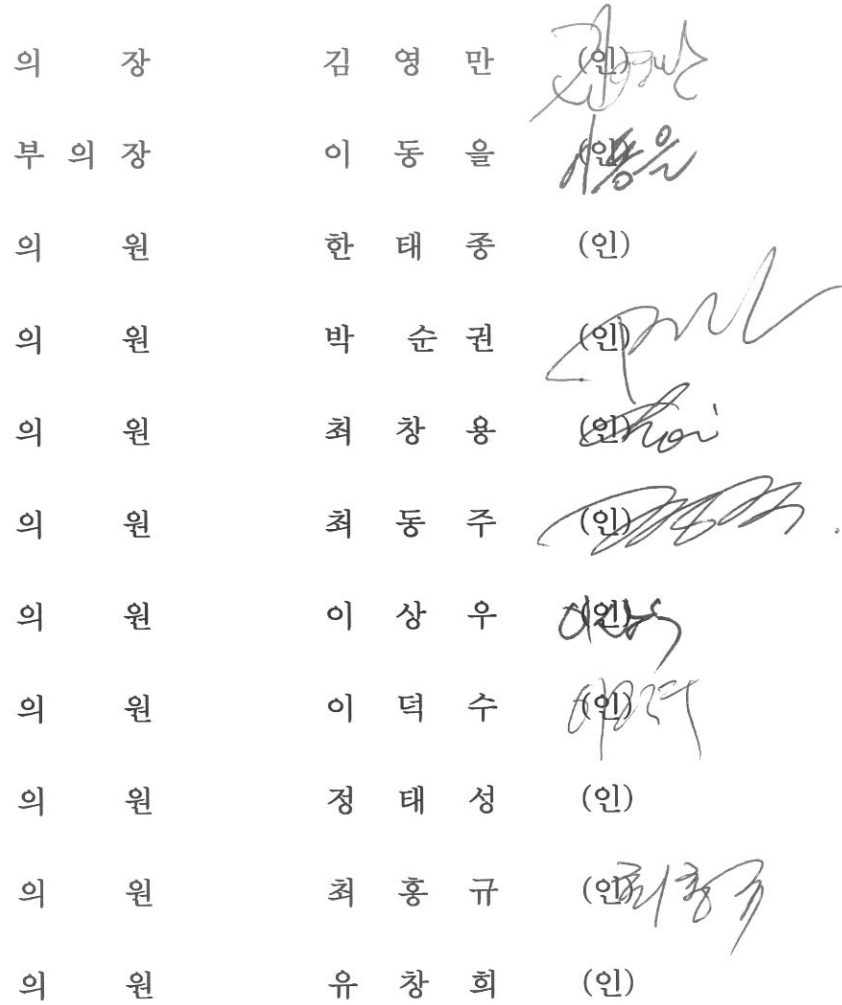 의 장 김 영 만 (인) 김영만
부 의 장 이 동 을 (인) 이동을
의 원 한 태 종 (인)
의 원 박 순 권 (인)
의 원 최 창 용 (인) Choi
의 원 최 동 주 (인)
의 원 이 상 우 (인)
의 원 이 덕 수 (인)
의 원 정 태 성 (인)
의 원 최 홍 규 (인) 최홍규
의 원 유 창 희 (인)